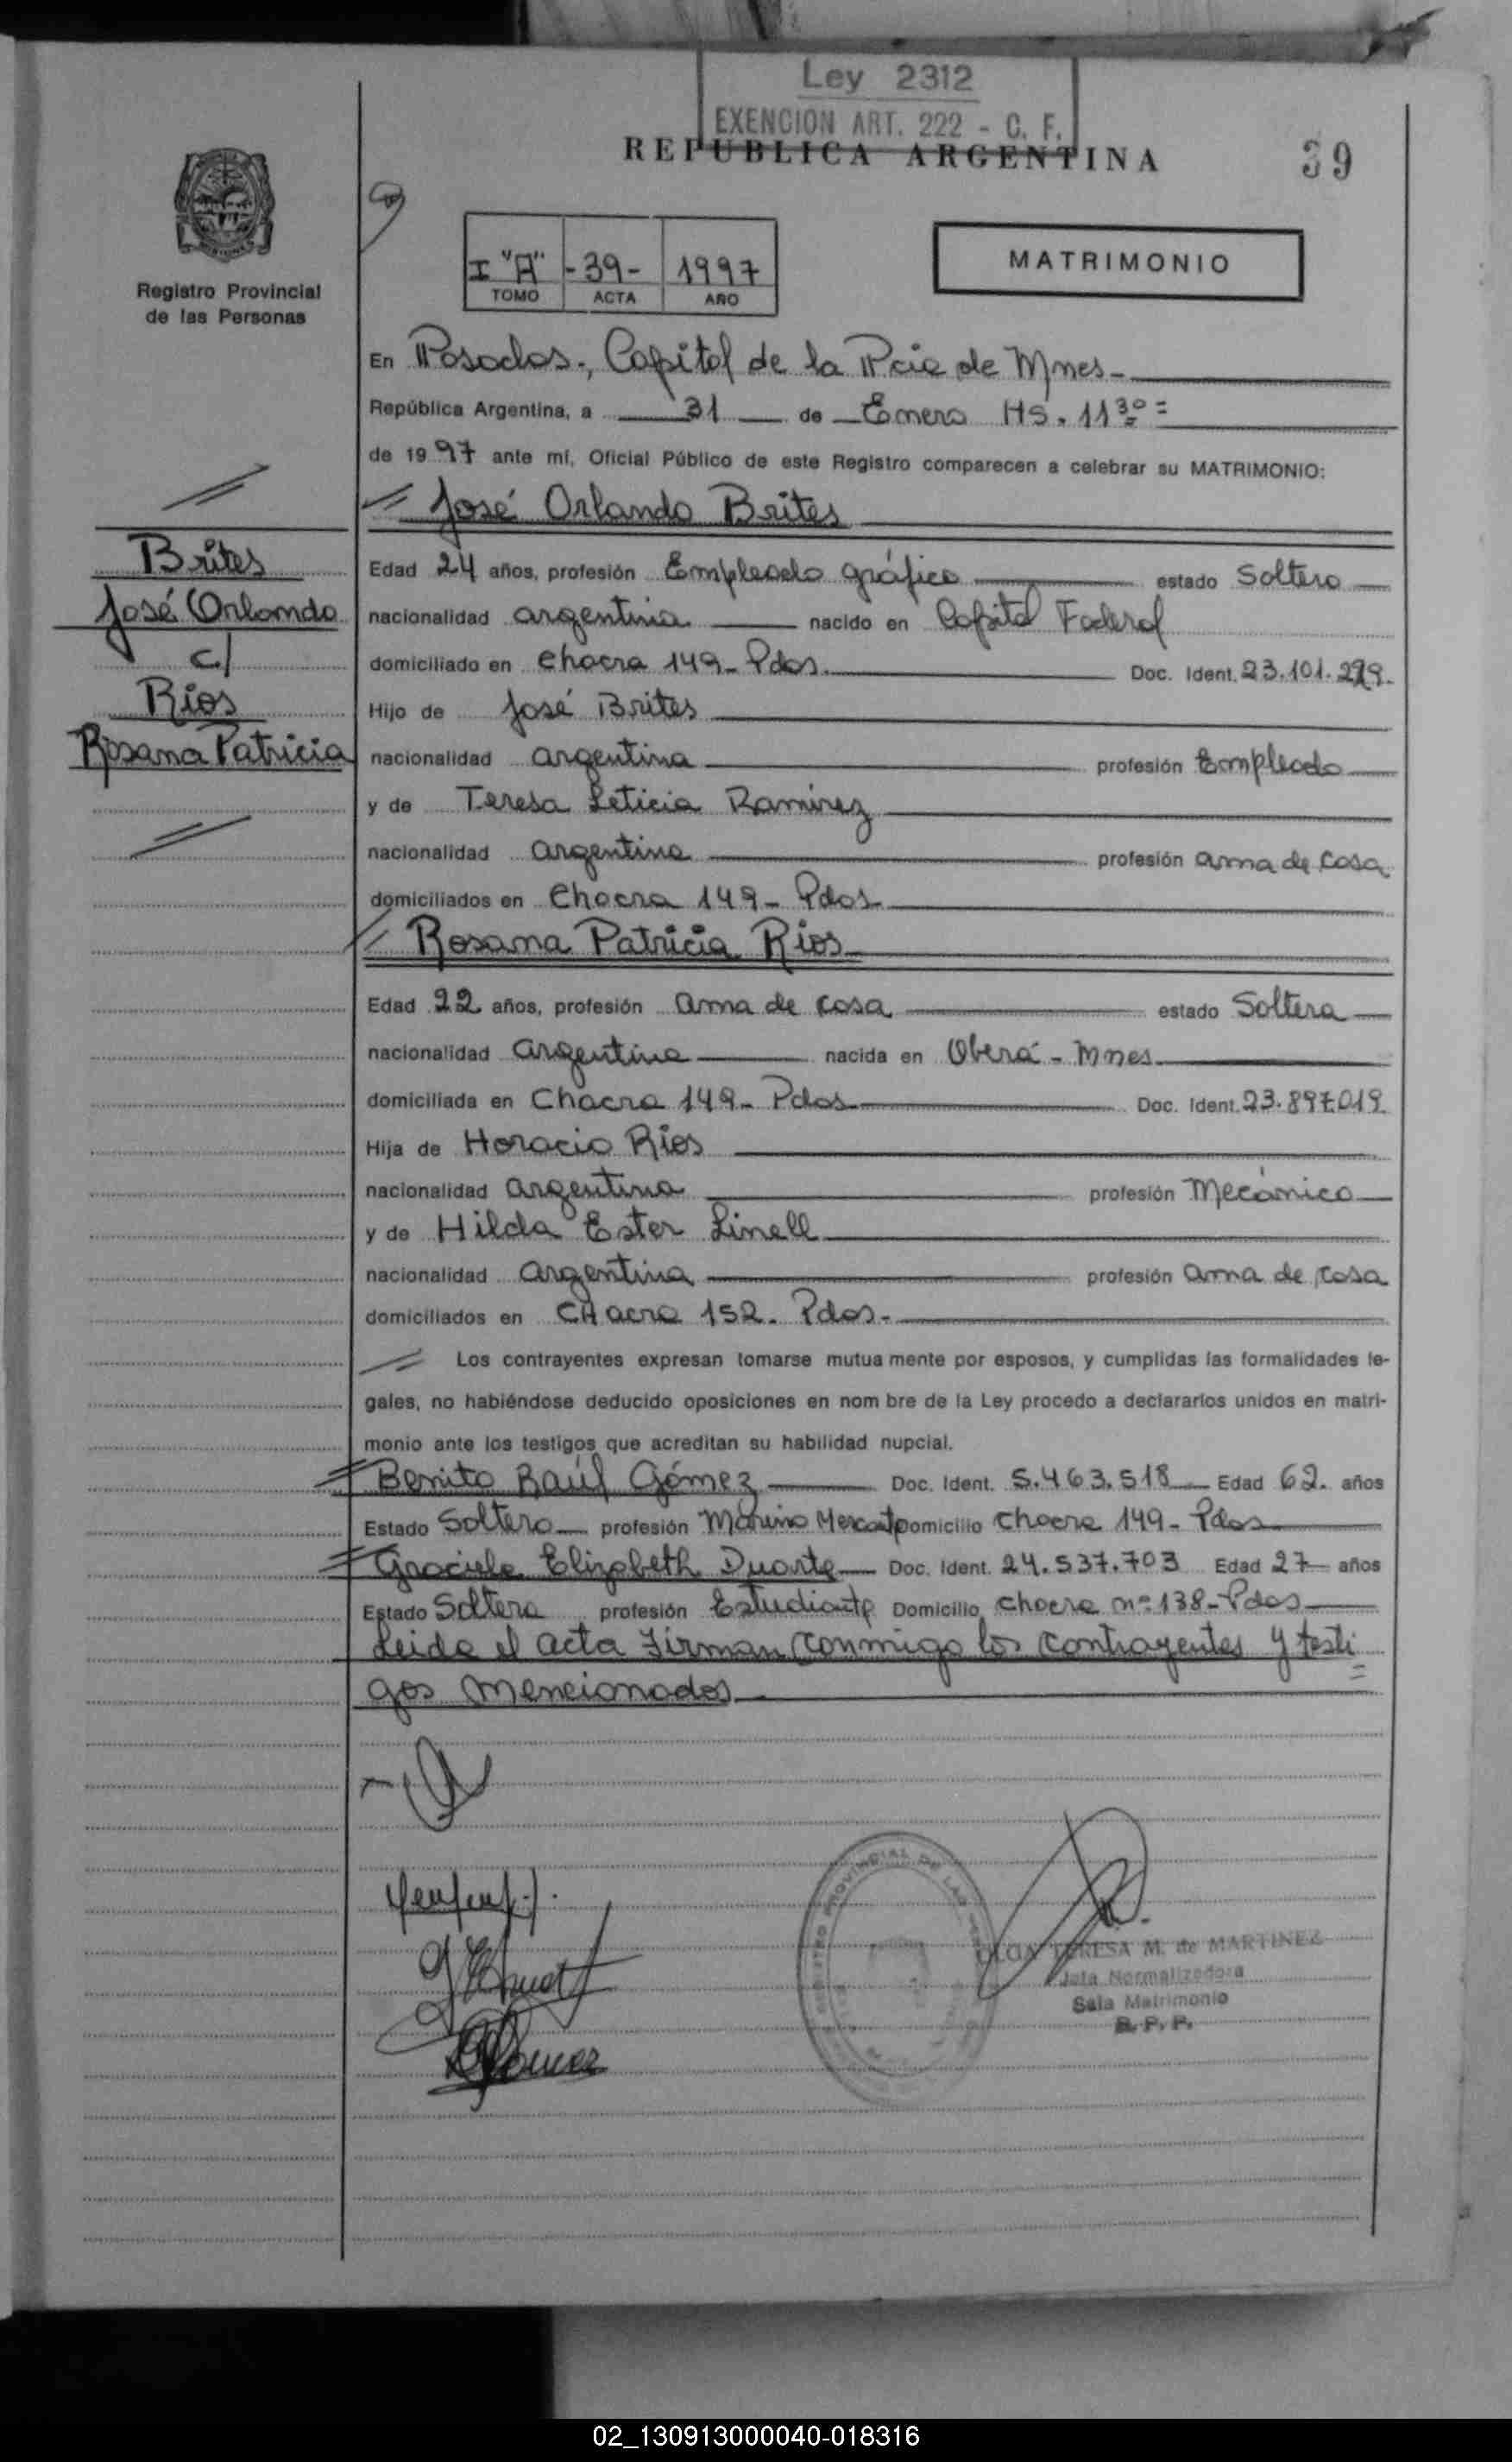 Ley 2312
EXENCION ART. 222 - C. F.
REPUBLICA ARGENTINA
39
Registro Provincial
de las Personas
I "A" -39- 1997
TOMO ACTA AÑO
MATRIMONIO
En Posadas-, Capital de la Pcia de Mnes-
República Argentina, a 31 de Enero Hs. 11 30=
de 1997 ante mí, Oficial Público de este Registro comparecen a celebrar su MATRIMONIO:
José Orlando Brites
Brites
José Orlando
c/
Rios
Rosana Patricia
Edad 24 años, profesión Empleado gráfico estado Soltero
nacionalidad argentina nacido en Capital Federal
domiciliado en chacra 149- Pdas. Doc. Ident. 23.101.
Hijo de José Brites
nacionalidad argentina profesión Empleado
y de Teresa Leticia Ramírez
nacionalidad argentina profesión ama de casa
domiciliados en Chacra 149- Pdas-
Rosana Patricia Rios
Edad 22 años, profesión ama de casa estado Soltera
nacionalidad argentina nacida en Oberá - Mnes
domiciliada en Chacra 149- Pdas Doc. Ident. 23.897.019
Hija de Horacio Rios
nacionalidad argentina profesión Mecánico
y de Hilda Ester Linell
nacionalidad argentina profesión ama de casa
domiciliados en CHacra 152. Pdas-
Los contrayentes expresan tomarse mutua mente por esposos, y cumplidas las formalidades le-
gales, no habiéndose deducido oposiciones en nom bre de la Ley procedo a declararlos unidos en matri-
monio ante los testigos que acreditan su habilidad nupcial.
Benito Raúl Gómez Doc. Ident. 5.463.518 Edad 62. años
Estado Soltero profesión Marino Mercant Domicilio chacra 149- Pdas
Graciela Elizabeth Duarte Doc. Ident. 24.537.703 Edad 27 años
Estado Soltera profesión Estudiante Domicilio chacra nº 138-Pdas
Leida el acta Firman conmigo los contrayentes y testi
gos mencionados
OLGA TERESA M. de MARTINEZ
Jefa Normalizadora
Sala Matrimonio
R. P. P.
02_130913000040-018316